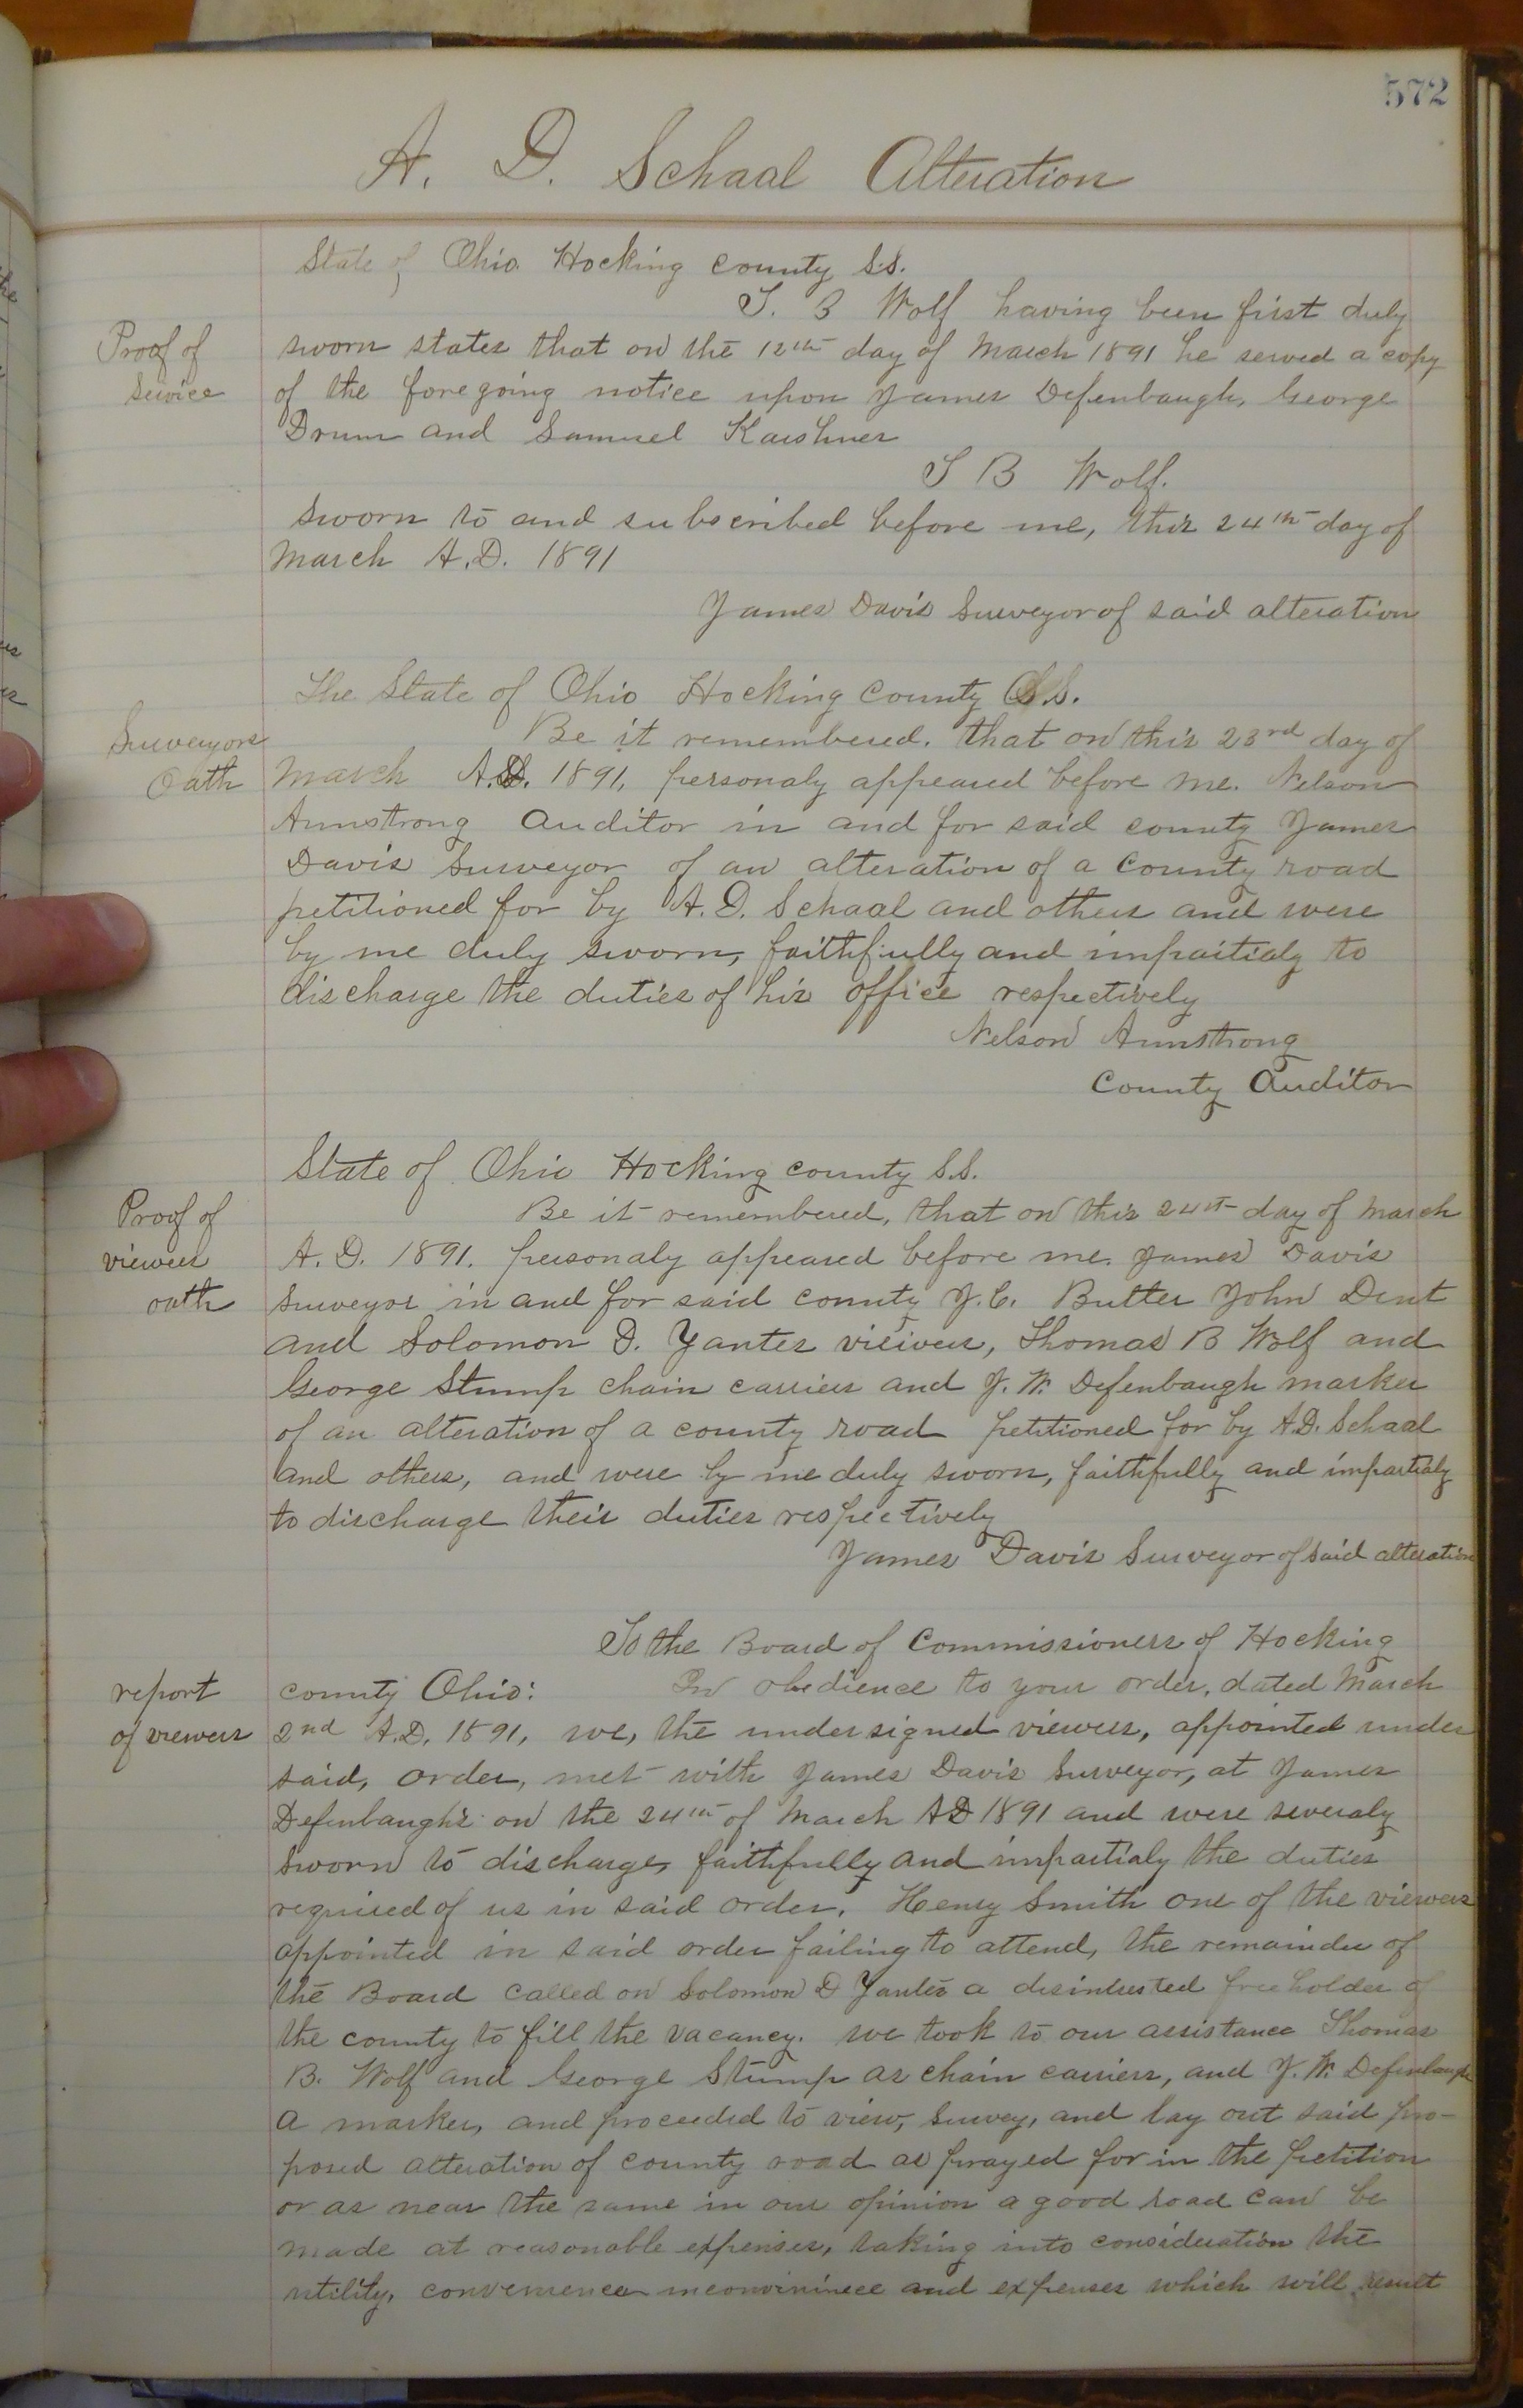 572
A. D. Schaal Alteration
State of Ohio Hocking county S.S.
T. B Wolf having been first duly
Proof of
Service
sworn states that on the 12th day of March 1891 he served a copy
of the foregoing notice upon James Defenbaugh, George
Drum and Samuel Karshner
T B Wolf.
Sworn to and subscribed before me, this 24th day of
March A.D. 1891
James Davis Surveyor of said alteration
The State of Ohio Hocking County S.S.
Surveyors
Oath
Be it remembered, that on this 23rd day of
March A.D. 1891, personaly appeared before me. Nelson
Armstrong Auditor in and for said county James
Davis Surveyor of an alteration of a County road
petitioned for by A.D. Schaal and others and were
by me duly sworn, faithfully and impartialy to
discharge the duties of his office respectively
Nelson Armstrong
County Auditor
State of Ohio Hocking county S.S.
Proof of
viewers
oath
Be it remembered, that on this 24th day of March
A. D. 1891. personaly appeared before me. James Davis
Surveyor in and for said county J.C. Butter John Dent
and Solomon D. Yantes viewers, Thomas B Wolf and
George Stump chain carriers and J. W. Defenbaugh marker
of an alteration of a county road petitioned for by A.D. Schaal
and others, and were by me duly sworn, faithfully and impartialy
to discharge their duties respectively
James Davis Surveyor of said alteration
To the Board of Commissioners of Hocking
report
of viewers
county Ohio: In obedience to your order, dated March
2nd A.D. 1891, we, the undersigned viewers, appointed under
said, order, met with James Davis Surveyor, at James
Defenbaugh's on the 24th of March AD 1891 and were severaly
sworn to discharge, faithfully and impartialy the duties
required of us in said order. Henry Smith one of the viewers
appointed in said order failing to attend, the remainder of
the Board called on Solomon D Yantes a disintrested freeholder of
the county to fill the vacancy. we took to our assistance Thomas
B. Wolf and George Stump as chain carriers, and J. W. Defenbaugh
a marker, and proceeded to view, survey, and lay out said pro-
posed alteration of county road as prayed for in the petition
or as near the same in our opinion a good road can be
made at reasonable expenses, taking into consideration the
utility, convenience inconvininece and expenses which will result